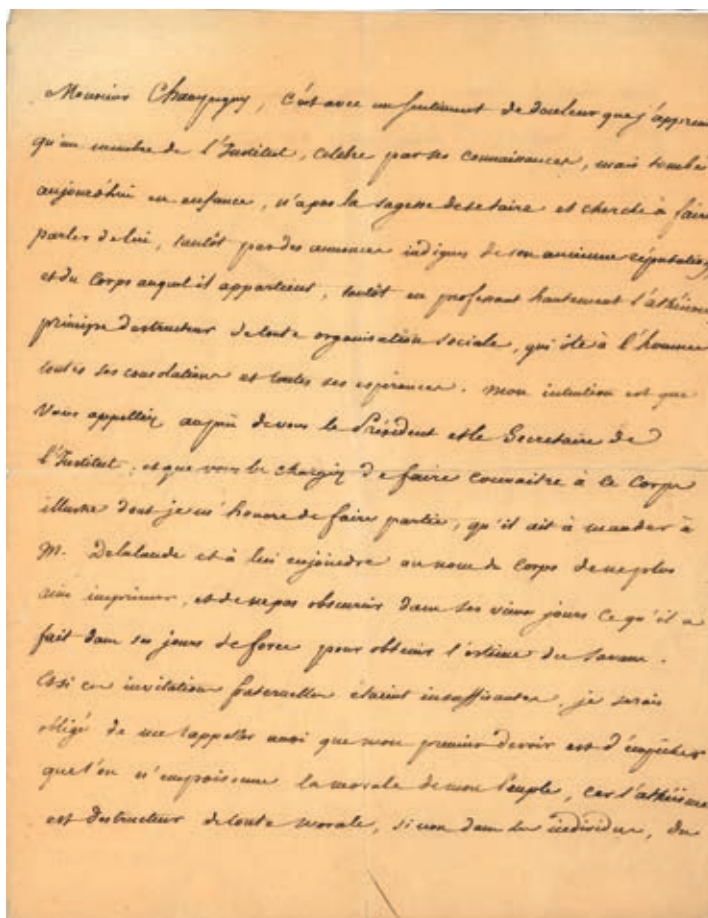 Monsieur Champagny, c'est avec un sentiment de douleur que j'apprens
qu'un membre de l'Institut, célèbre par ses connaissances, mais tombé
aujourd'hui en enfance, n'a pas la sagesse de se taire et cherche à faire
parler de lui, tantôt par des annonces indignes de son ancienne réputation
et du Corps auquel il appartient, tantôt en professant hautement l'athéisme,
principe destructeur de toute organisation sociale, qui ôte à l'homme
toutes ses consolations et toutes ses espérances. Mon intention est que
Vous appelliez auprès de vous le Président et le Secrétaire de
l'Institut, et que vous les chargiez de faire connaitre à ce Corps
illustre dont je m'honore de faire partie, qu'il ait à mander à
M. Delalande et à lui enjoindre au nom du Corps de ne plus
rien imprimer, et de ne pas obscurcir dans ses vieux jours ce qu'il a
fait dans ses jours de force pour obtenir l'estime des Savans.
Et si ces invitations fraternelles étaient insuffisantes, je serais
obligé de me rappeller aussi que mon premier devoir est d'empêcher
que l'on n'empoisonne la morale de mon Peuple, car l'athéisme
est destructeur de toute morale, si non dans les individus, du